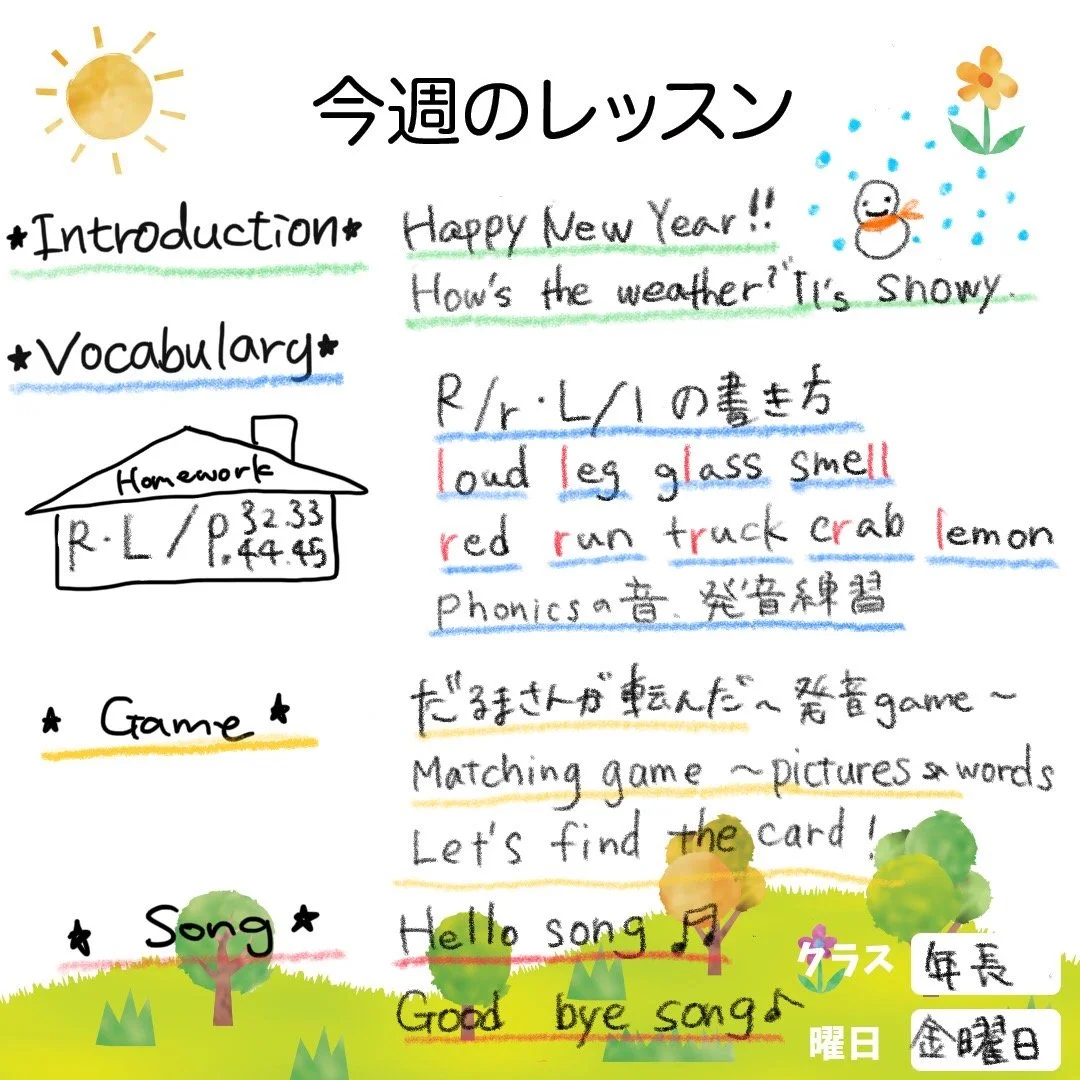 今週のレッスン
★Introduction★
Happy New Year!!
How's the weather? It's snowy.
★Vocabulary★
R/r・L/lの書き方
loud leg glass smell
red run truck crab lemon
Phonicsの音、発音練習
Homework
R・L/P.32.33
44.45
★Game★
だるまさんが転んだ〜発音game〜
Matching game 〜pictures words
Let's find the card!
★Song★
Hello song ♬
Good bye song♪
クラス 年長
曜日 金曜日